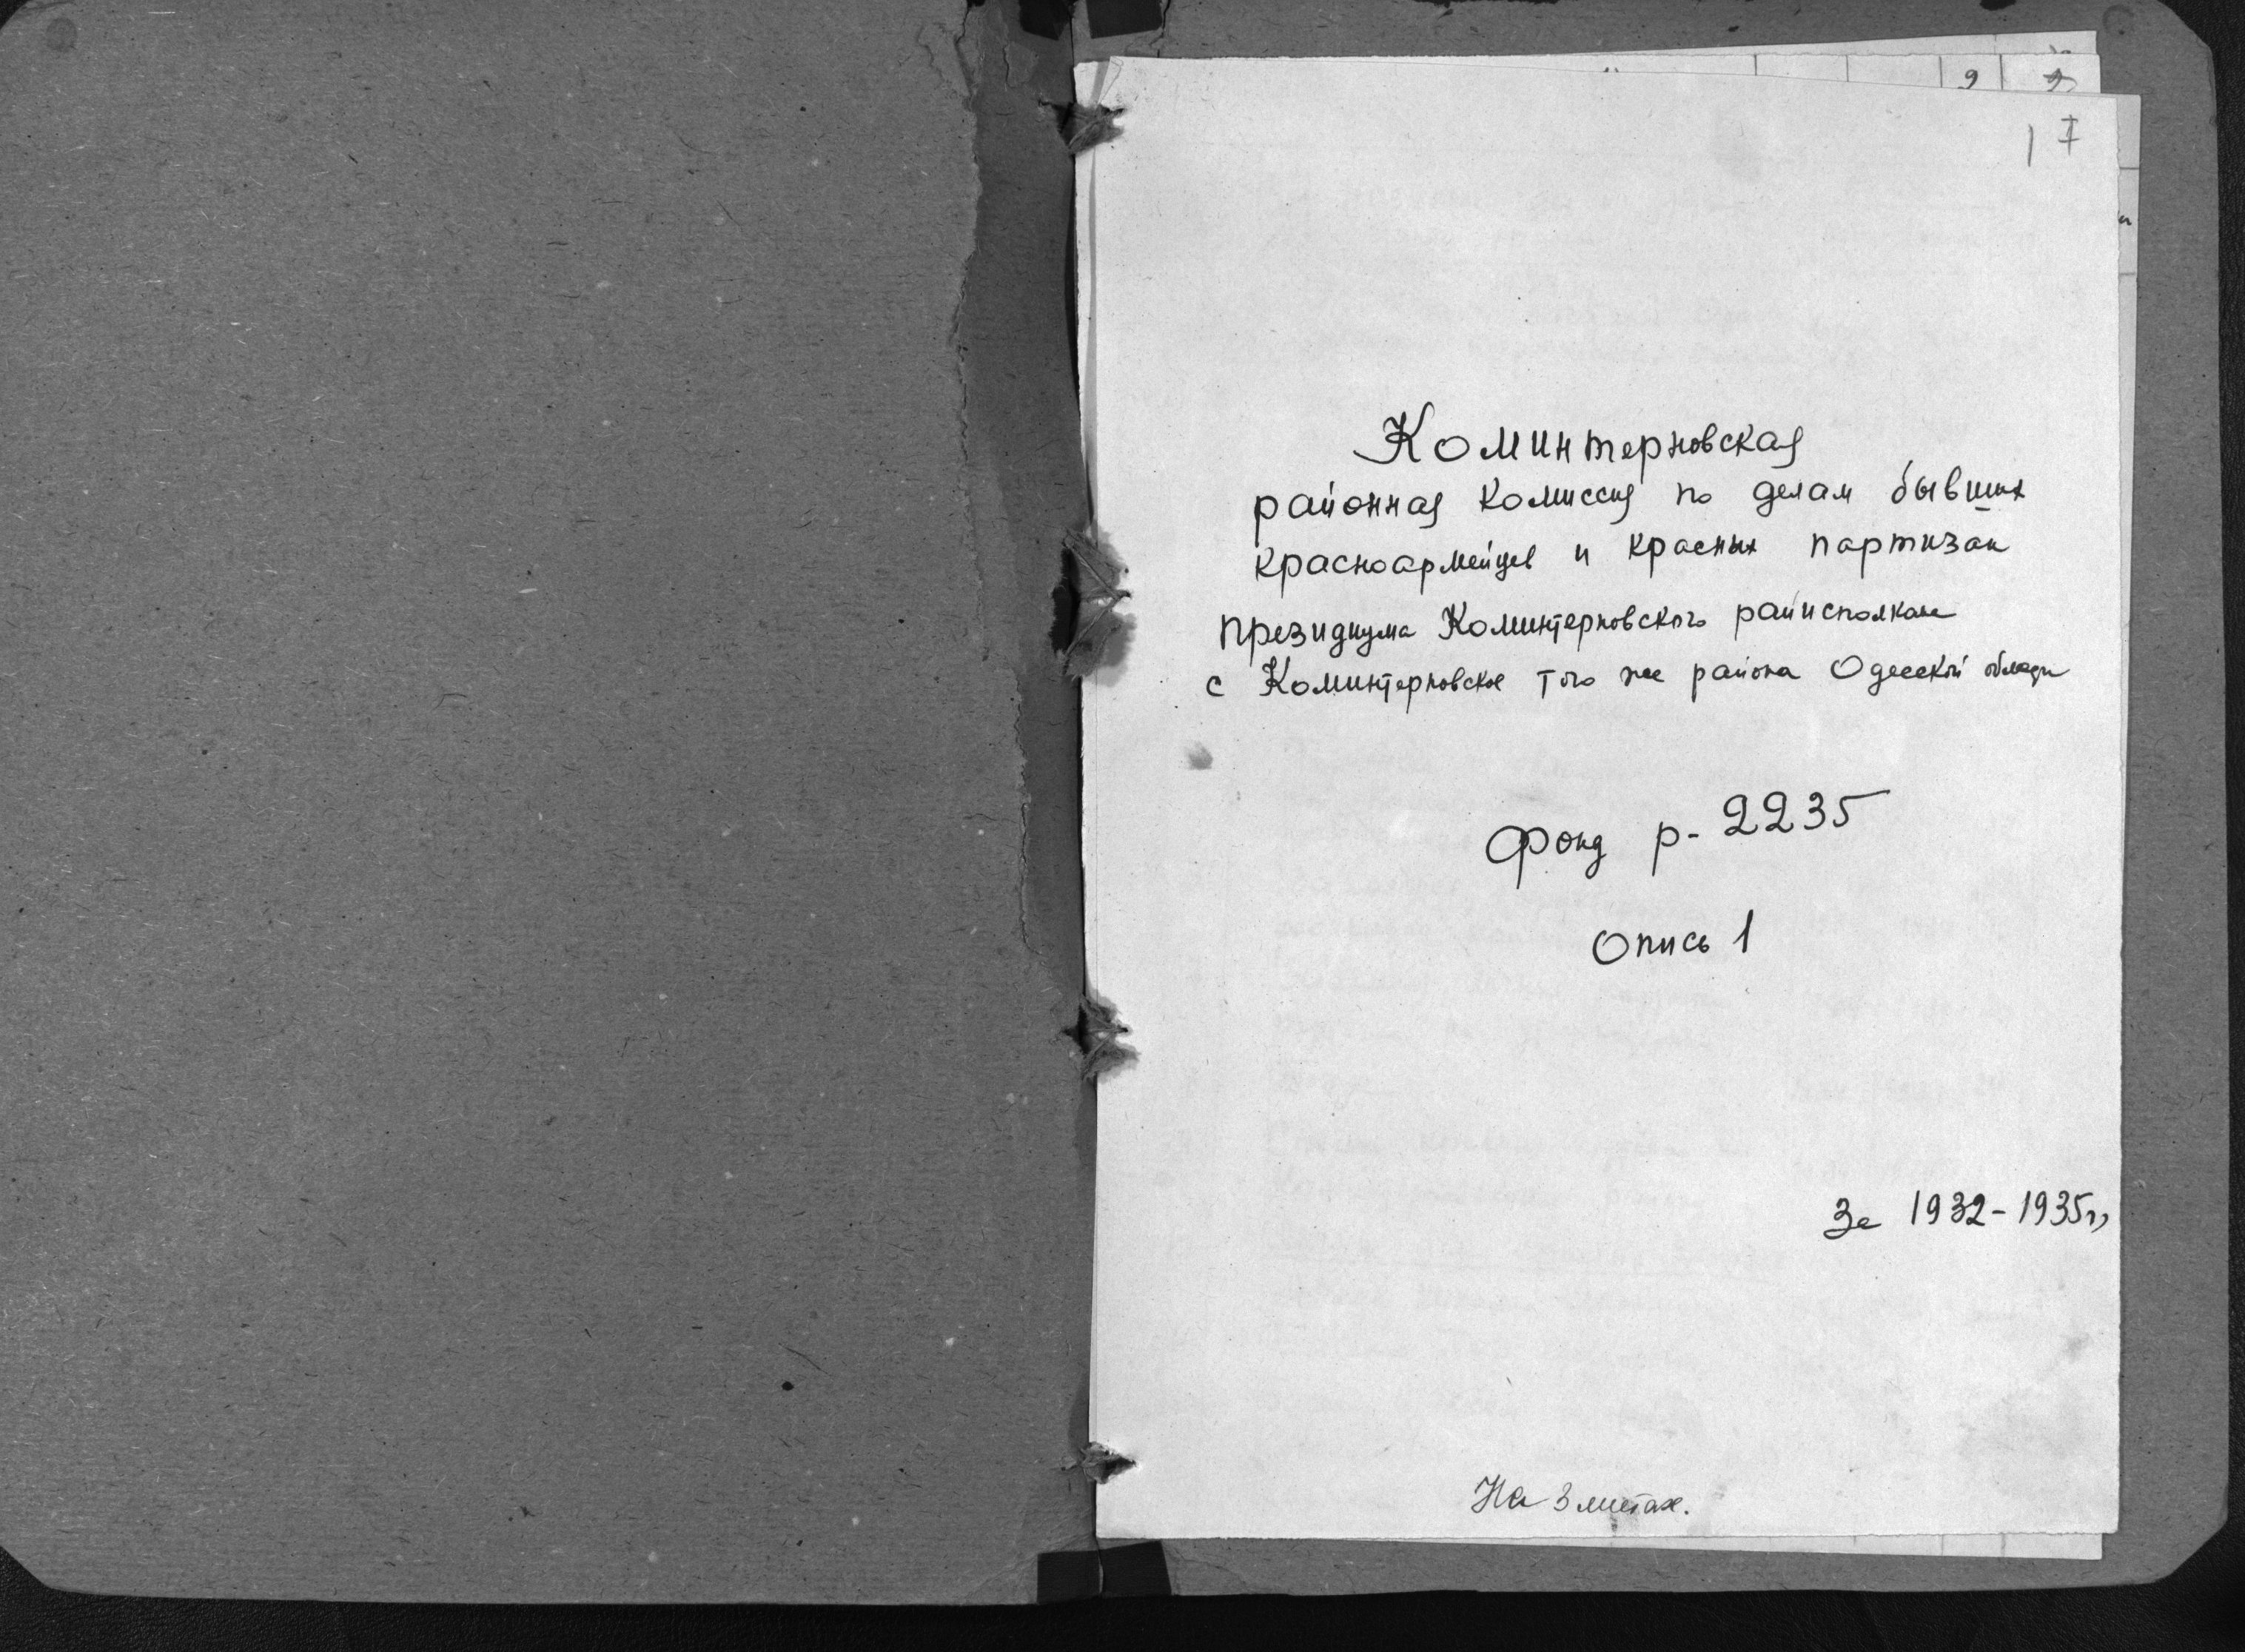 9 9
1 I
Коминтерновская
районная комиссия по делам бывших
красноармейцев и красных партизан
президиума Коминтерновского райисполкома
с Коминтерновское того же района Одесской области
Фонд р-2235
Опись 1
За 1932-1935гг
На 3 листах.